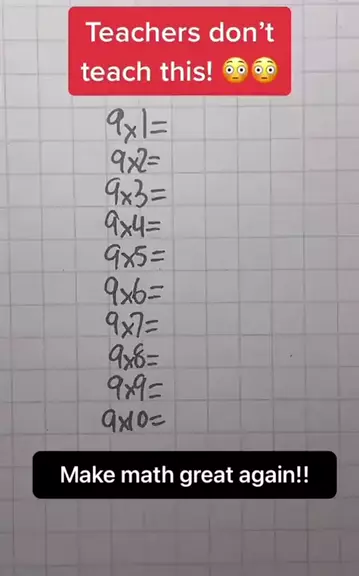 Teachers don’t
teach this! 😳😳
9x1=
9x2=
9x3=
9x4=
9x5=
9x6=
9x7=
9x8=
9x9=
9x10=
Make math great again!!